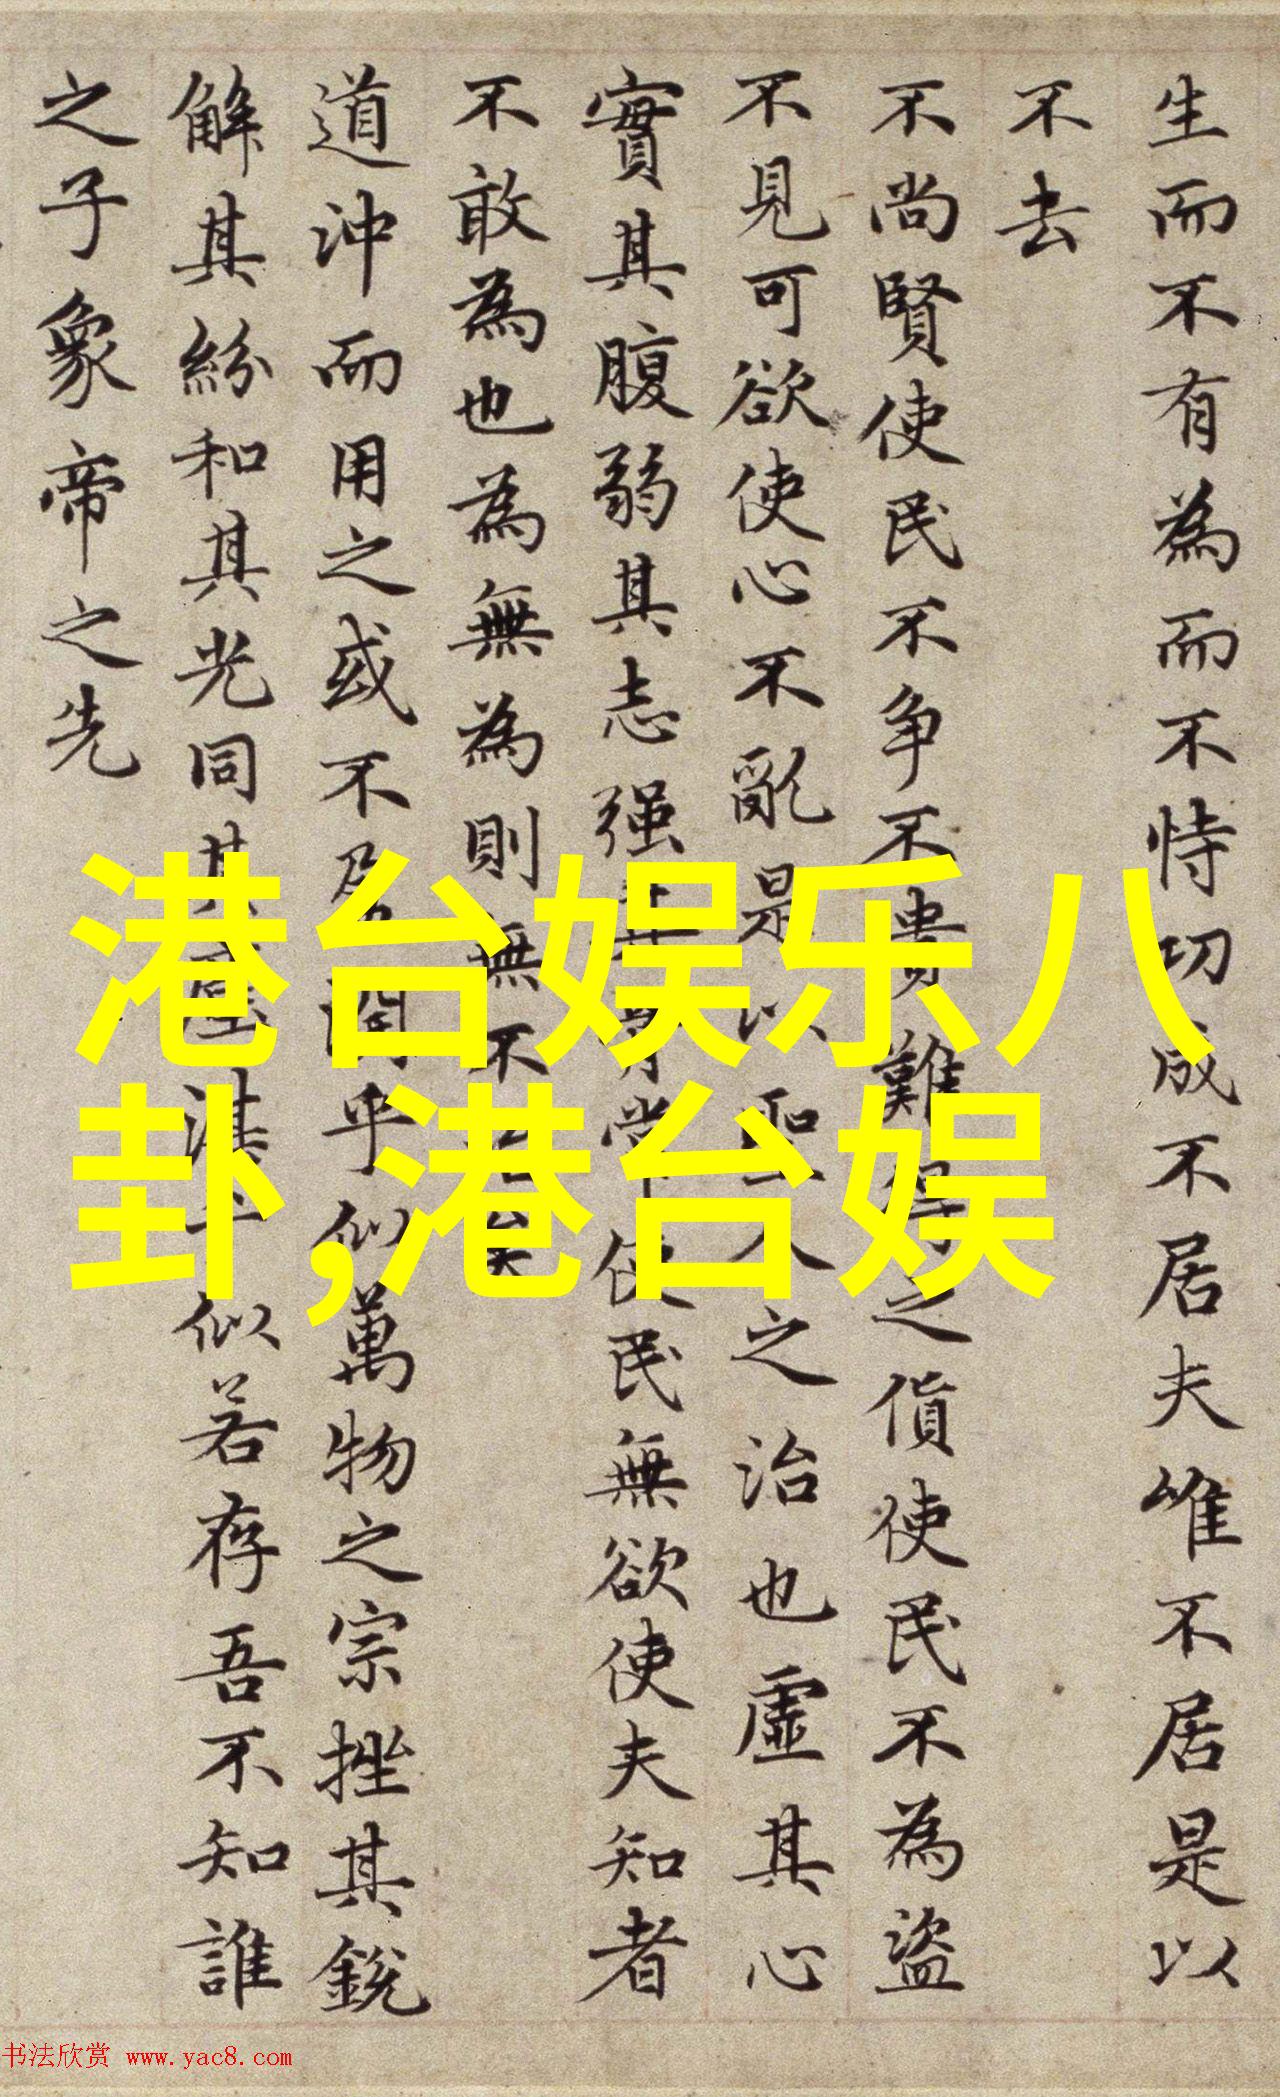 生而不有為而不恃功成不居夫唯不居是以
不去
不尚賢使民不争不貴難得之貨使民不為盜
不見可欲使心不亂是以聖人之治也虛其心
實其腹弱其志强其骨常使民無欲使夫知者
不敢為也為無為則無不治矣
道沖而用之或不盈淵乎似萬物之宗挫其銳
解其紛和其光同其塵湛乎似若存吾不知誰
之子象帝之先
港台娱乐八
卦,港台娱
书法欣赏 www.yac8.com